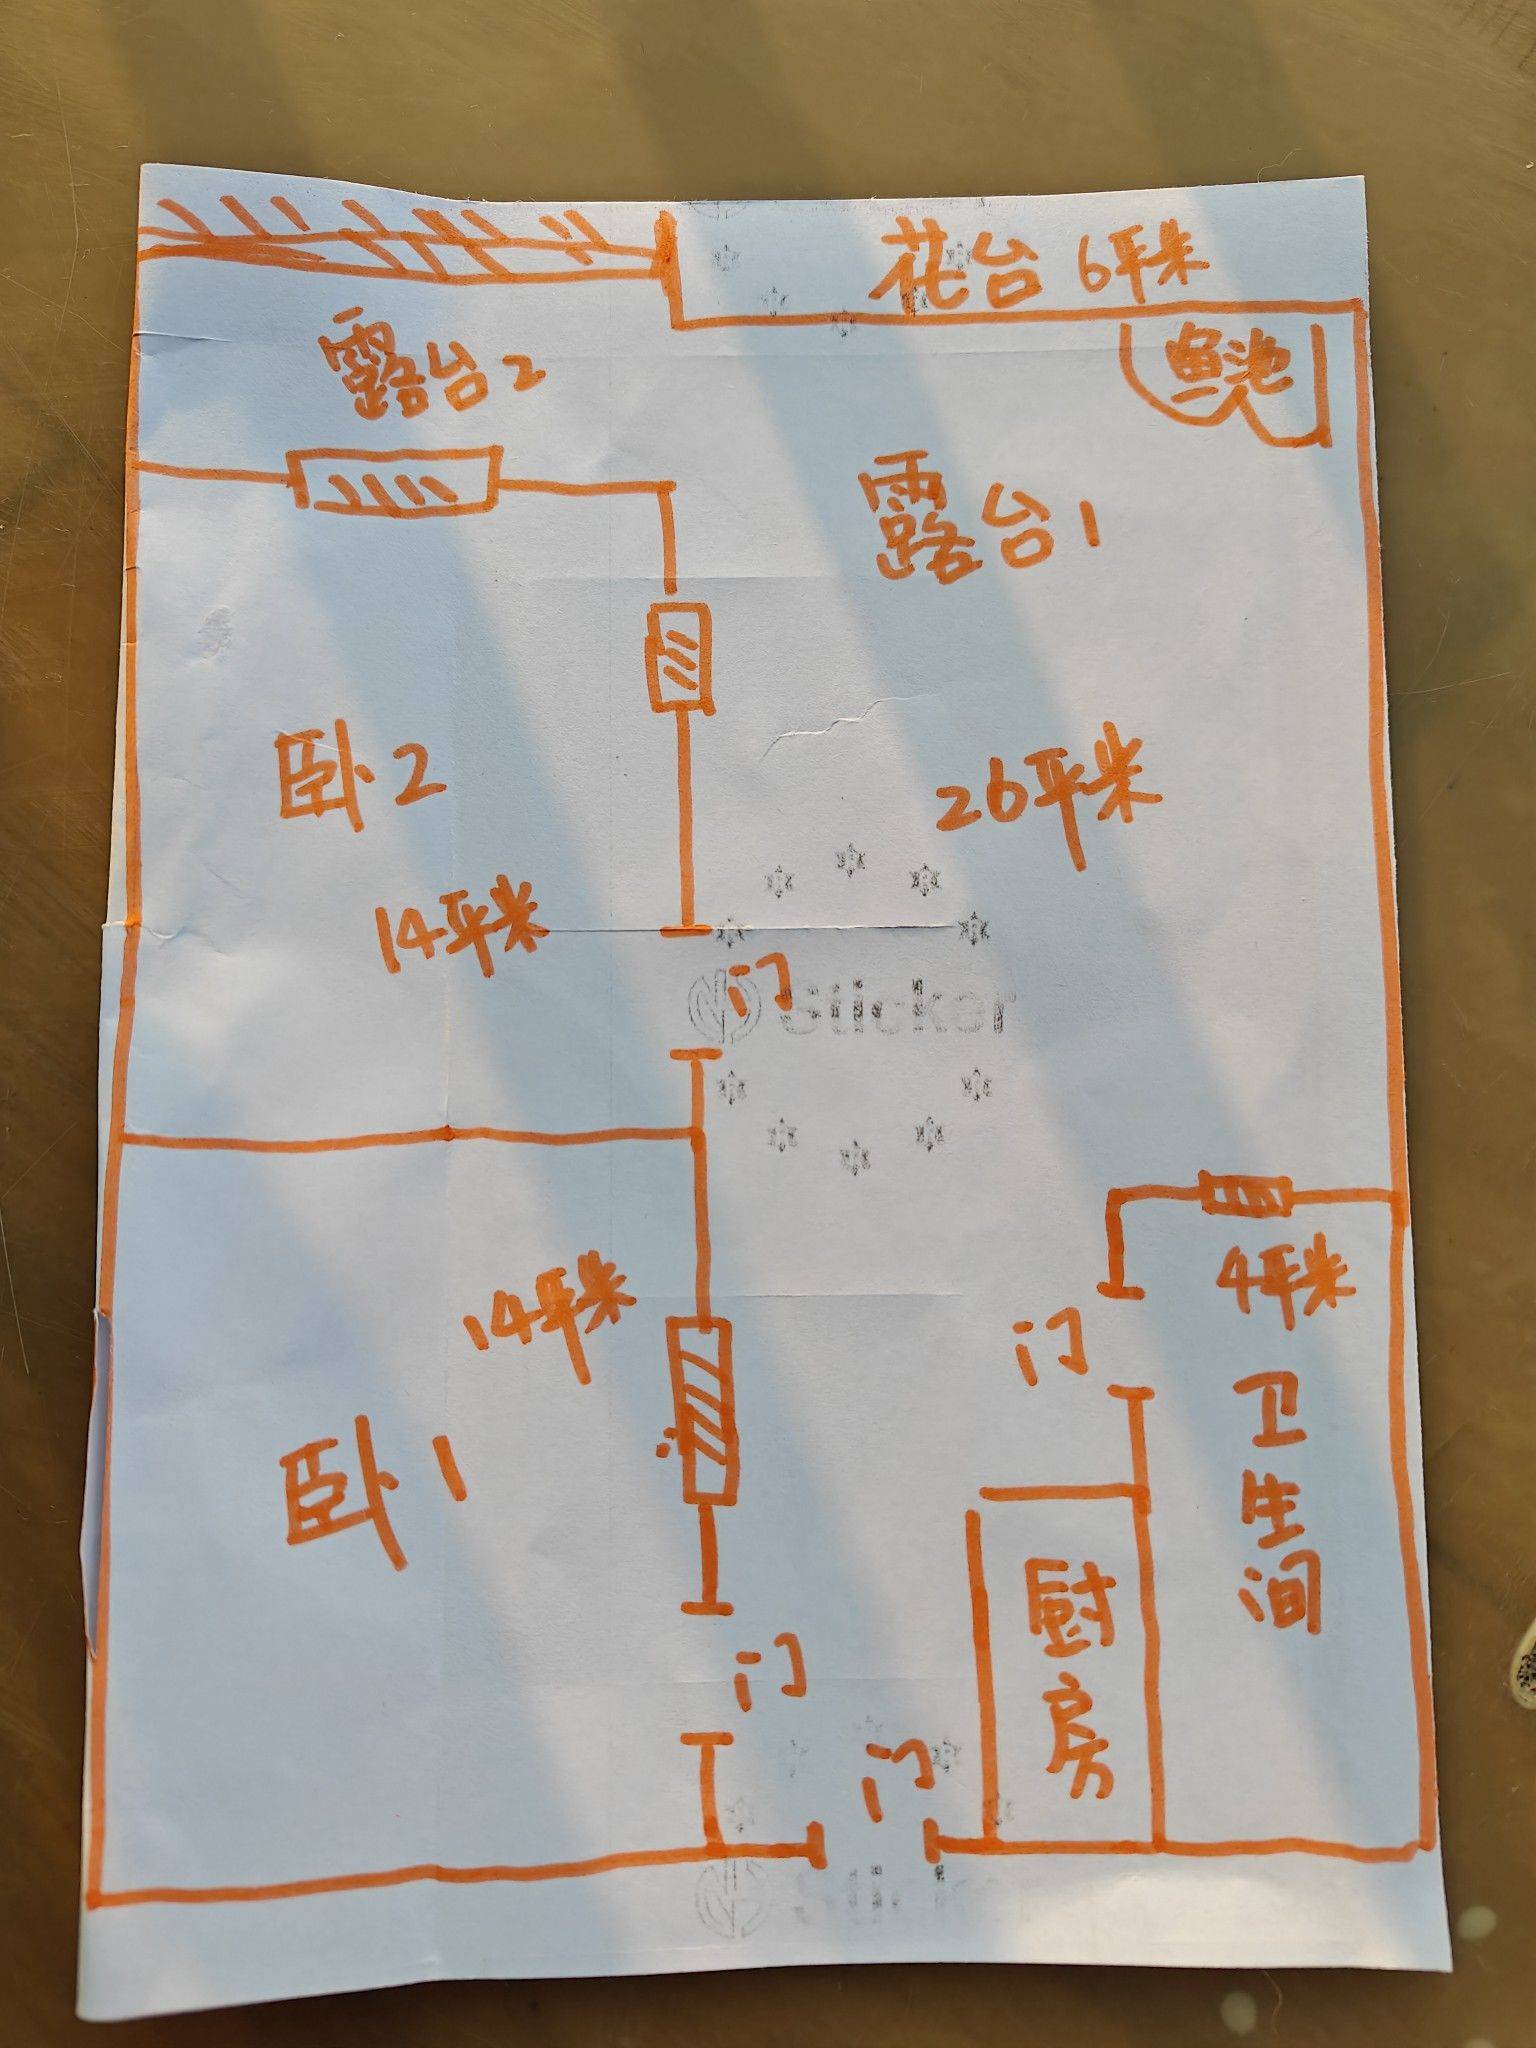 花台 6平米
鱼池
露台2
露台1
卧2
26平米
14平米
门
Sticker
14平米
4平米
门
卫生间
卧1
厨房
门
门